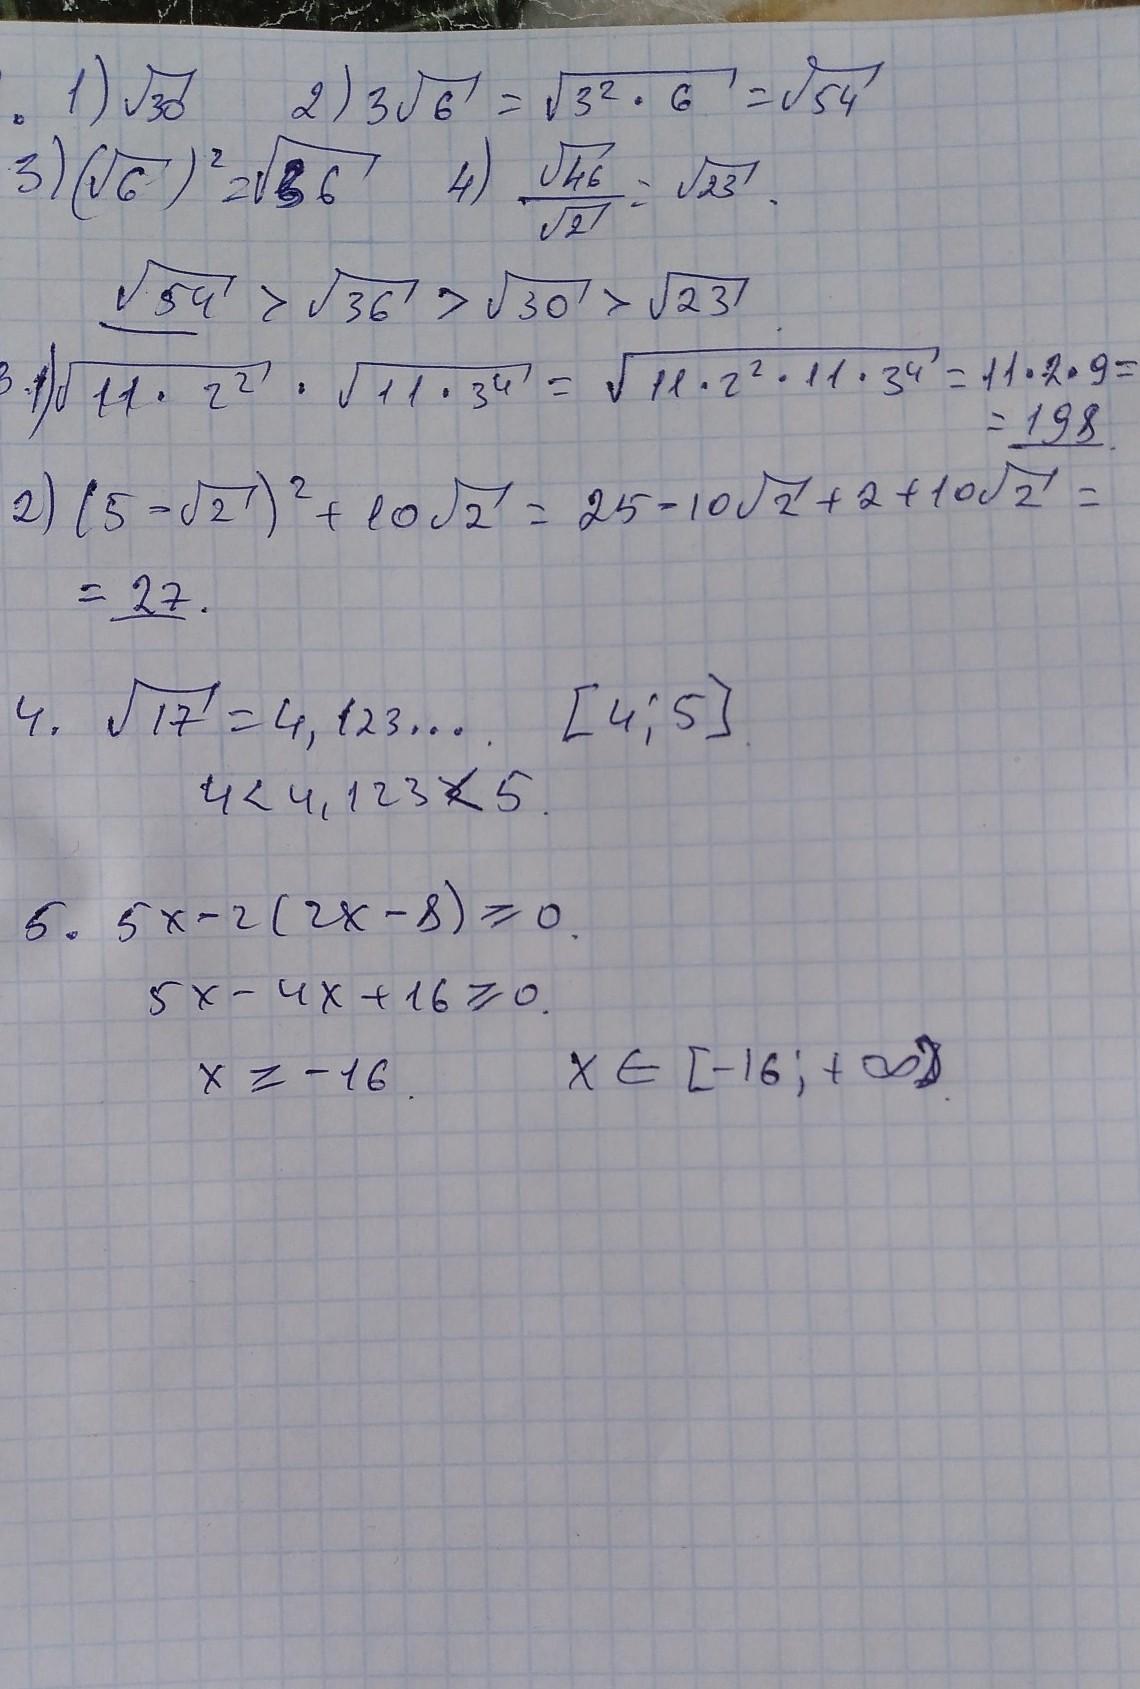 . 1) √30 2) 3√6 = √3² · 6 = √54
3) (√6)² = √36 4) √46/√2 = √23.
√54 > √36 > √30 > √23.
3.1) √11 · 2² · √11 · 3⁴ = √11 · 2² · 11 · 3⁴ = 11 · 2 · 9 =
= 198.
2) (5 - √2)² + 10√2 = 25 - 10√2 + 2 + 10√2 =
= 27.
4. √17 = 4,123.... [4; 5].
4 < 4,123 < 5.
5. 5x - 2(2x - 8) ≥ 0.
5x - 4x + 16 ≥ 0.
x ≥ -16. x ∈ [-16; +∞).